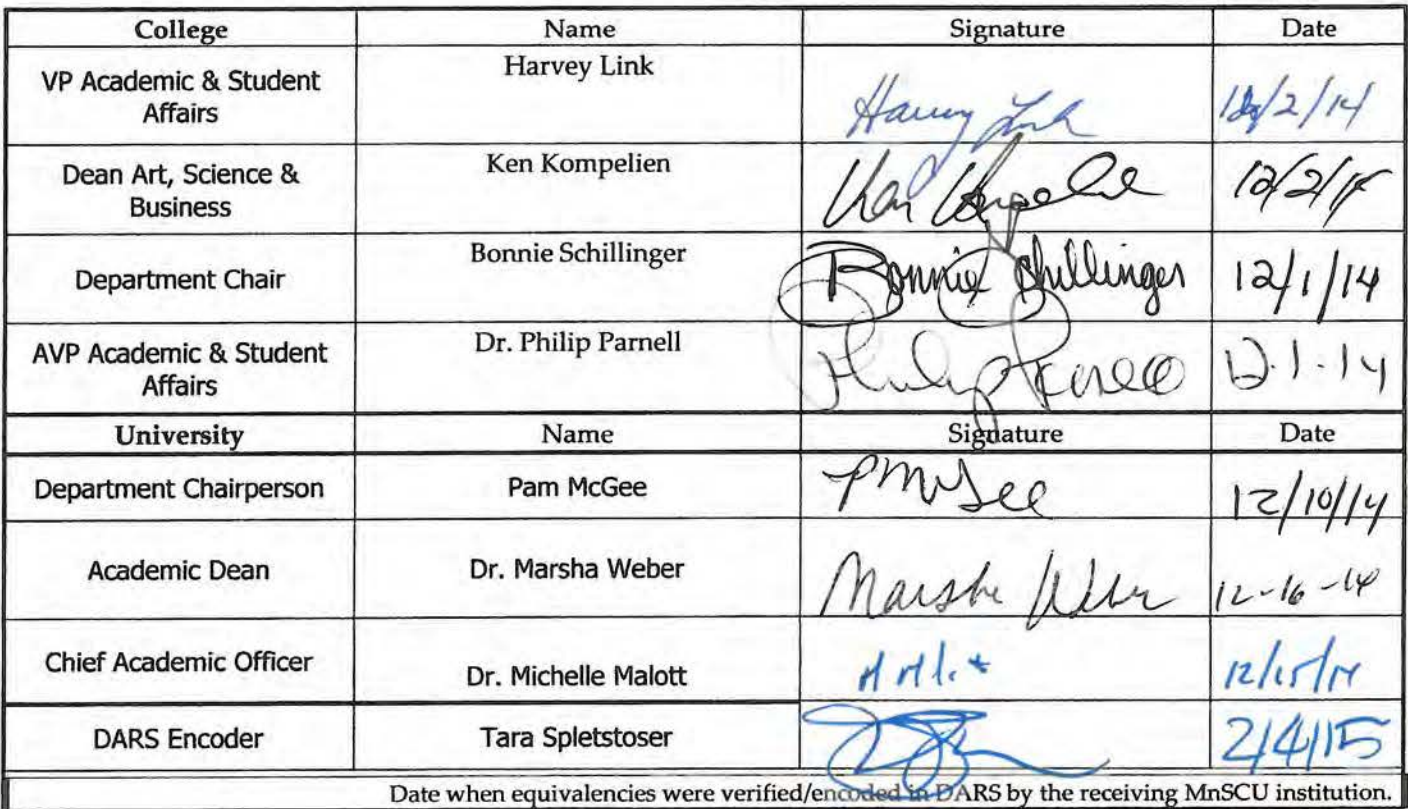 College Name Signature Date
VP Academic & Student Affairs Harvey Link Harvey Link 12/2/14
Dean Art, Science & Business Ken Kompelien Ken Kompelien 12/2/14
Department Chair Bonnie Schillinger Bonnie Schillinger 12/1/14
AVP Academic & Student Affairs Dr. Philip Parnell Philip Parnell 12.1.14
University Name Signature Date
Department Chairperson Pam McGee PMcGee 12/10/14
Academic Dean Dr. Marsha Weber Marsha Weber 12-16-14
Chief Academic Officer Dr. Michelle Malott 12/15/14
DARS Encoder Tara Spletstoser 2/4/15
Date when equivalencies were verified/encoded in DARS by the receiving MnSCU institution.